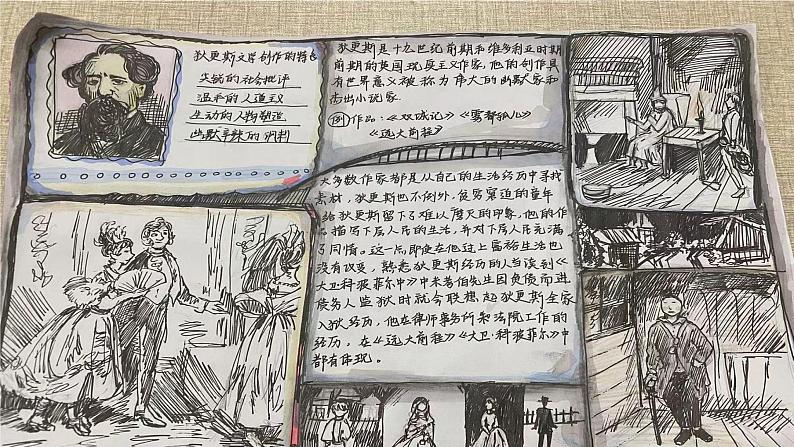 狄更斯文学创作的特色
尖锐的社会批评
温和的人道主义
生动的人物塑造
幽默辛辣的讽刺
狄更斯是十九世纪前期和维多利亚时期
前期的英国现实主义作家，他的创作具
有世界意义被称为伟大的幽默家和
杰出小说家
例作品：《双城记》《雾都孤儿》
《远大前程》
大多数作家都是从自己的生活经历中寻找
素材，狄更斯也不例外，贫穷窘迫的童年
给狄更斯留下了难以磨灭的印象，他的作
品描写下层人民的生活，并对下层人民充满
了同情。这一点即使在他过上富裕生活也
没有改变，熟悉狄更斯经历的人当读到《
大卫科波菲尔中》中米考伯先生因负债而进
债务人监狱时就会联想起狄更斯全家
入狱经历，他在律师事务所和法院工作的
经历，在《远大前程》《大卫·科波菲尔》中
都有体现。